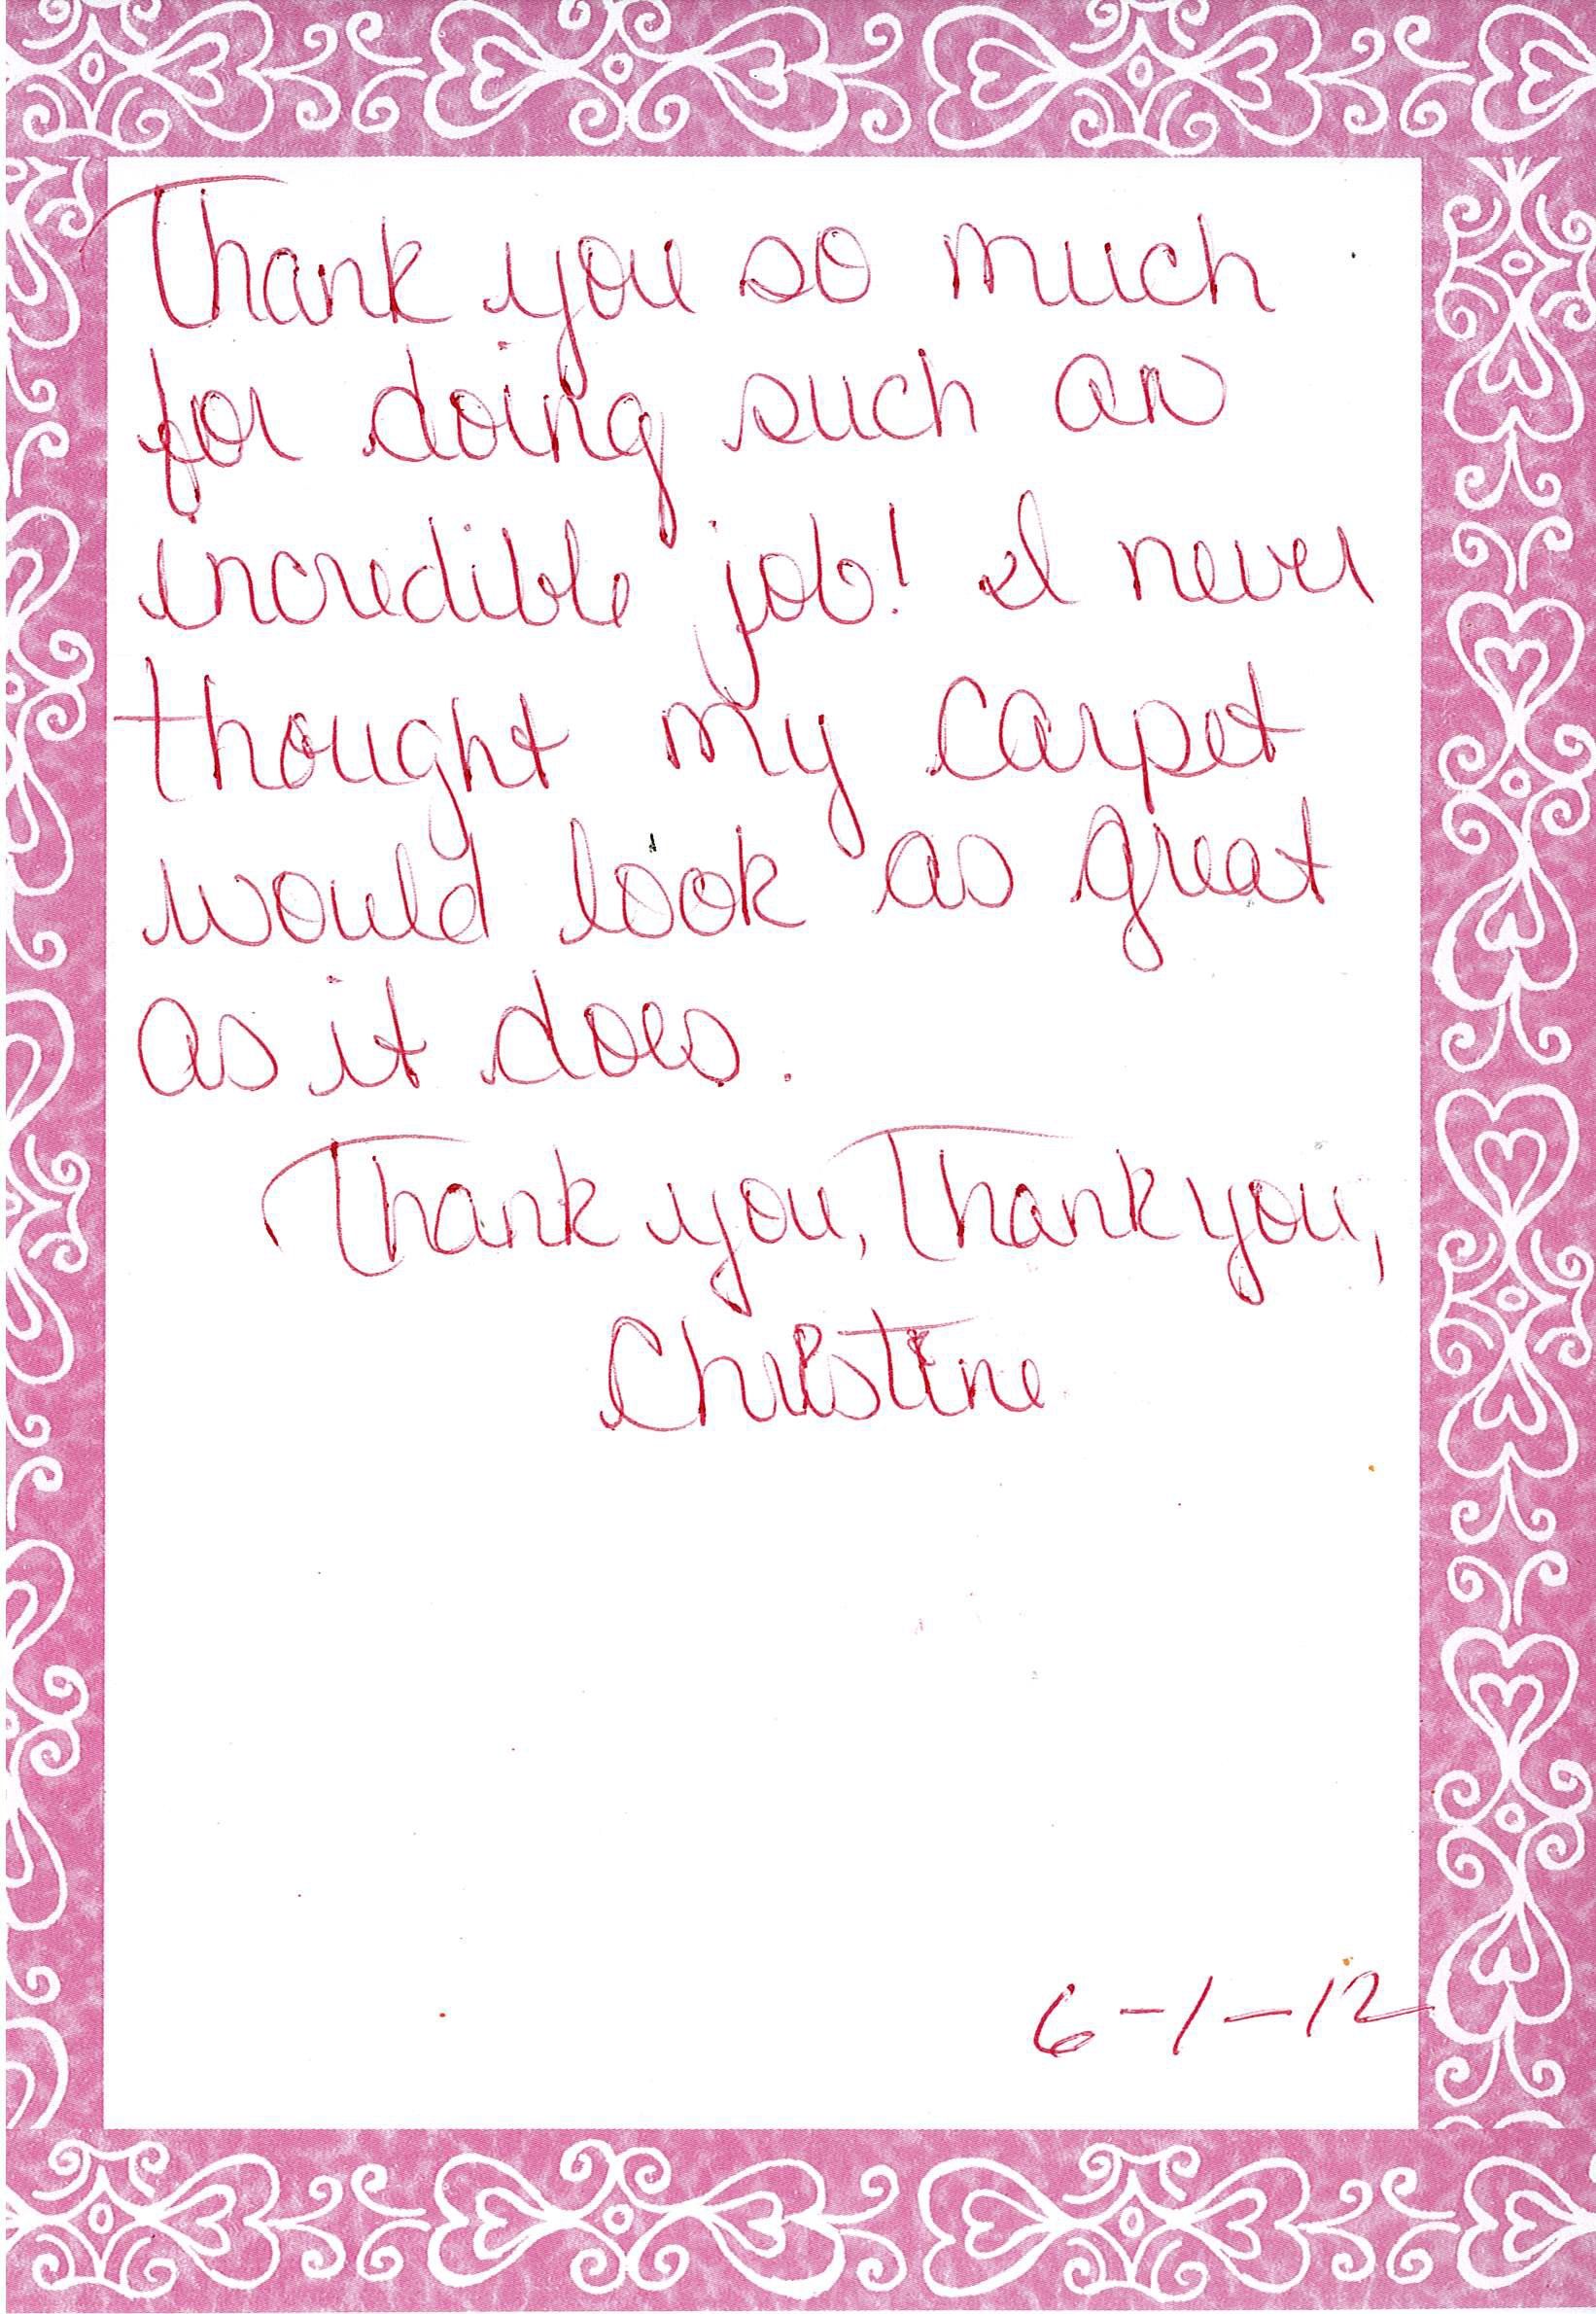 Thank you so much
for doing such an
incredible job! I never
thought my carpet
would look as great
as it does.
Thank you, Thank you,
Christine
6-1-12